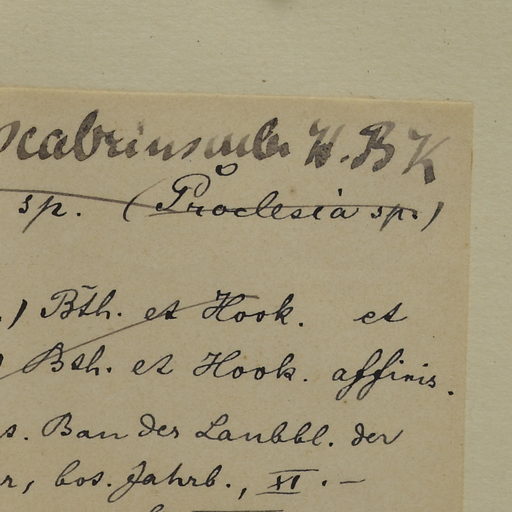 scabriuscula H. B K
sp. (Proclesia sp.)
.) Bth. et Hook. et
) Bth. et Hook. affinis.
s. Bau der Laubbl. der
r, bos. Jahrb., XI. —